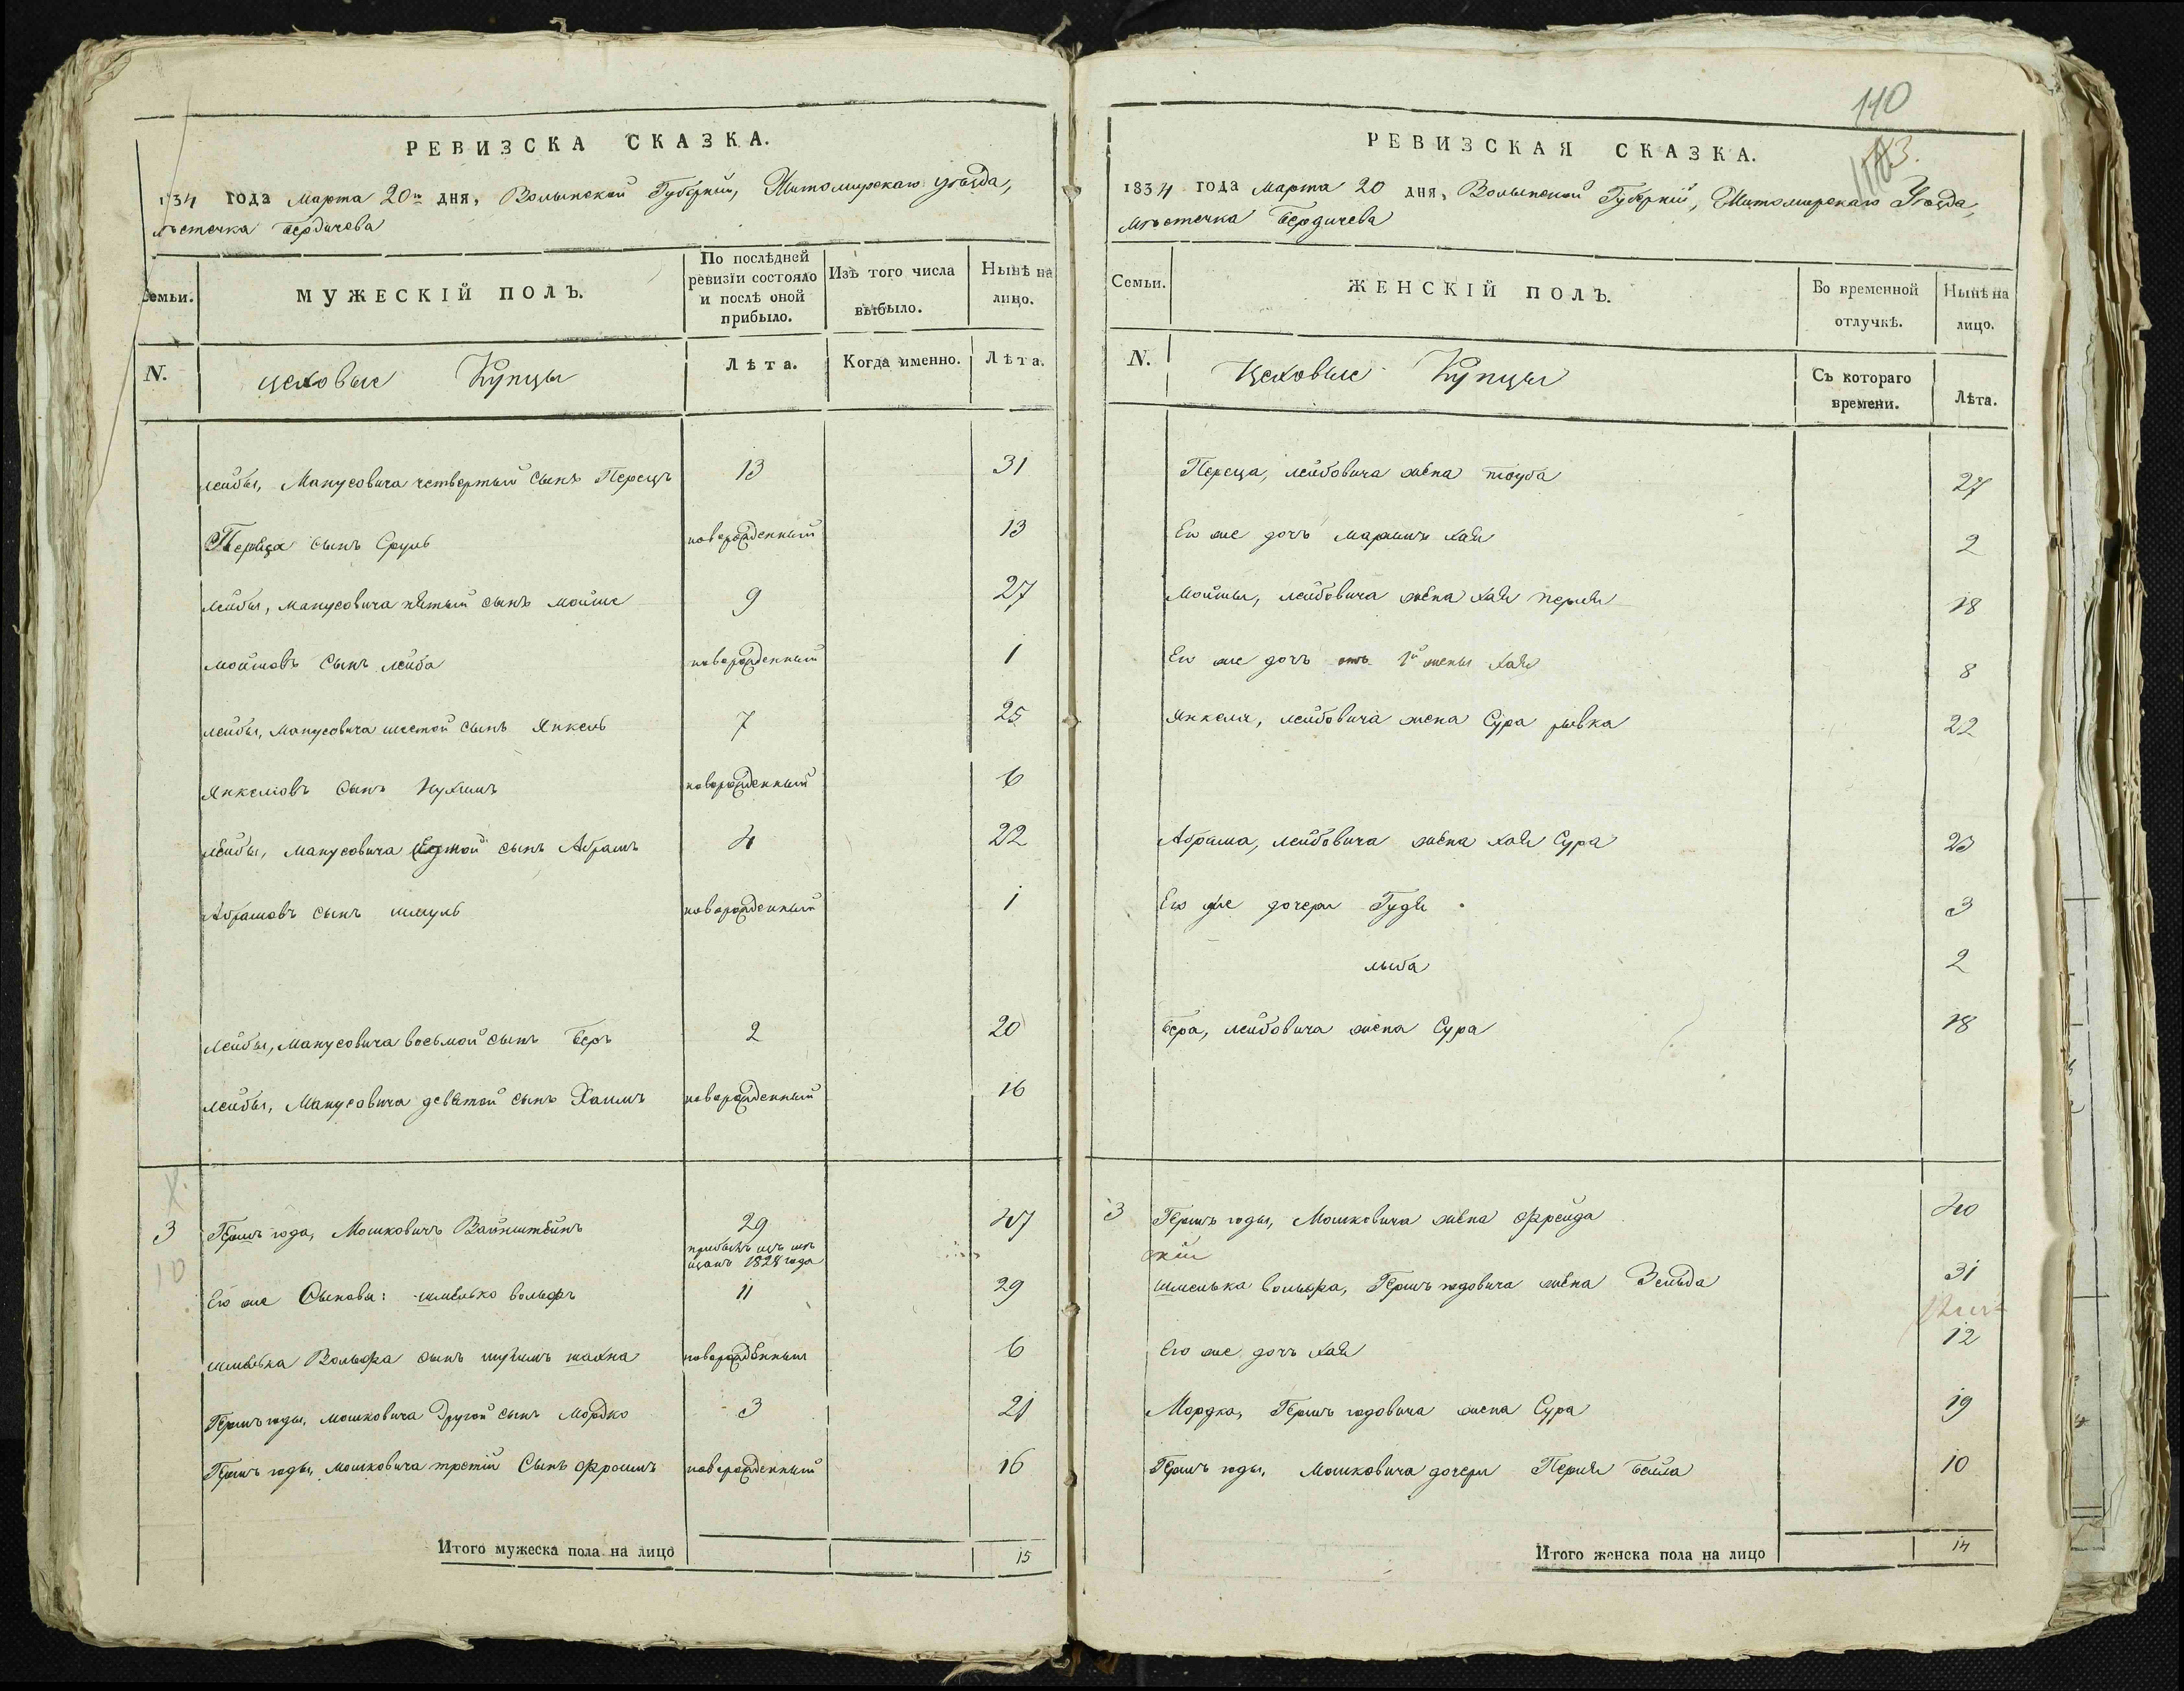 РЕВИЗСКА СКАЗКА.
1834 года Марта 20го дня, Волынской Губерніи, Житомирскаго уѣзда,
мѣстечка Бердичева
Семьи.
МУЖЕСКІЙ ПОЛЪ.
По послѣдней ревизіи состояло и послѣ оной прибыло.
Изъ того числа выбыло.
Нынѣ на лицо.
N.
цеховые Купцы
Лѣта.
Когда именно.
Лѣта.
лейбы, Манусовича четвертый сынъ Перецъ 13 31
Переца сынъ Сруль новорожденный 13
лейбы, Манусовича пятый сынъ мойше 9 27
мойшовъ сынъ лейба новорожденный 1
лейбы, Манусовича шестой сынъ Янкель 7 25
Янкеліовъ сынъ Нухимъ новорожденный 6
лейбы, Манусовича седмой сынъ Абрамъ 4 22
Абрамовъ сынъ шмуль новорожденный 1
лейбы, Манусовича восьмой сынъ Беръ 2 20
лейбы, Манусовича девятой сынъ Хаимъ новорожденный 16
X.
3 Гершъ года, Мошковичъ Вайнштейнъ 29 47
прибылъ изъ мѣщанъ 1828 года
10
Его же Сыновья: шмелько вольфъ 11 29
шмелька Вольфа сынъ шахна новорожденный 6
Гершъ годы, мошковича Другой сынъ Мордко 3 21
Гершъ годы, мошковича третій Сынъ Фроимъ новорожденный 16
Итого мужеска пола на лицо 15
110
РЕВИЗСКАЯ СКАЗКА.
1834 года Марта 20 дня, Волынской Губерніи, Житомирскаго Уѣзда,
мѣстечка Бердичева
Семьи.
ЖЕНСКІЙ ПОЛЪ.
Во временной отлучкѣ.
Нынѣ на лицо.
N.
Цеховые Купцы
Съ котораго времени.
Лѣта.
Переца, лейбовича жена тауба 27
Его же дочь хая 2
Мойшы, лейбовича жена хая перля 18
Его же дочь отъ 1й жены хая 8
Янкеля, лейбовича жена Сура рывка 22
Абрама, лейбовича жена хая Сура 23
Его же дочери Гудя 3
лыба 2
Бера, лейбовича жена Сура 18
3 Гершъ годы, Мошковича жена Фрейда 40
шмелька вольфа, Гершъ годовича жена Зельда 31
Его же дочь хая 12
Мордка, Гершъ годовича жена Сура 19
Гершъ годы, Мошковича дочери Перля бейла 10
Итого женска пола на лицо 14